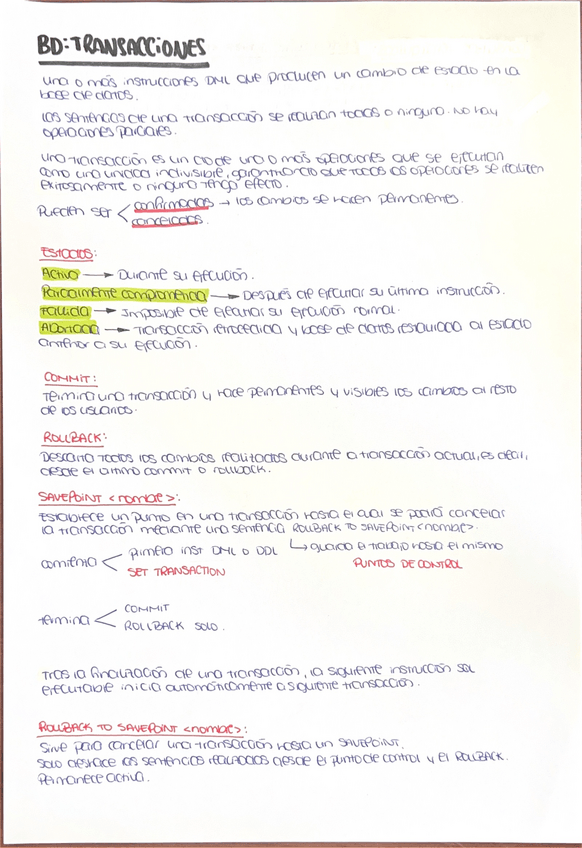 BD: TRANSACCIONES
una o más instrucciones DML que producen un cambio de estado en la
base de datos.
los sentencias de una transacción se realizan todas o ninguna. No hay
operaciones parciales.
una transacción es un cto de uno o más operaciones que se ejecutan
como una unidad indivisible, garantizando que todas las operaciones se realicen
exitosamente o ninguna tenga efecto.
Pueden ser < confirmadas → los cambios se hacen permanentes.
canceladas.
ESTADOS:
Activo → Durante su ejecución.
Parcialmente comprometida → Después de ejecutar su última instrucción.
Fallida → Imposible de ejecutar su ejecución normal.
Abortada → Transacción retrocedida y base de datos restaurada al estado
anterior a su ejecución.
COMMIT:
Termina una transacción y hace permanentes y visibles los cambios al resto
de los usuarios.
ROLLBACK:
Descarta todos los cambios realizados durante la transacción actual, es decir,
desde el último commit o rollback.
SAVEPOINT <nombre>:
Establece un punto en una transacción hasta el cual se podrá cancelar
la transacción mediante una sentencia ROLLBACK TO SAVEPOINT <nombre>.
comienza < primera inst DML o DDL ↳ guarda el trabajo hasta el mismo
SET TRANSACTION PUNTOS DE CONTROL
termina < COMMIT
ROLLBACK SOLO.
Tras la finalización de una transacción, la siguiente instrucción SQL
ejecutable inicia automáticamente la siguiente transacción.
ROLLBACK TO SAVEPOINT <nombre>:
Sirve para cancelar una transacción hasta un SAVEPOINT.
Solo deshace las sentencias realizadas desde el punto de control y el ROLLBACK.
Permanece activa.